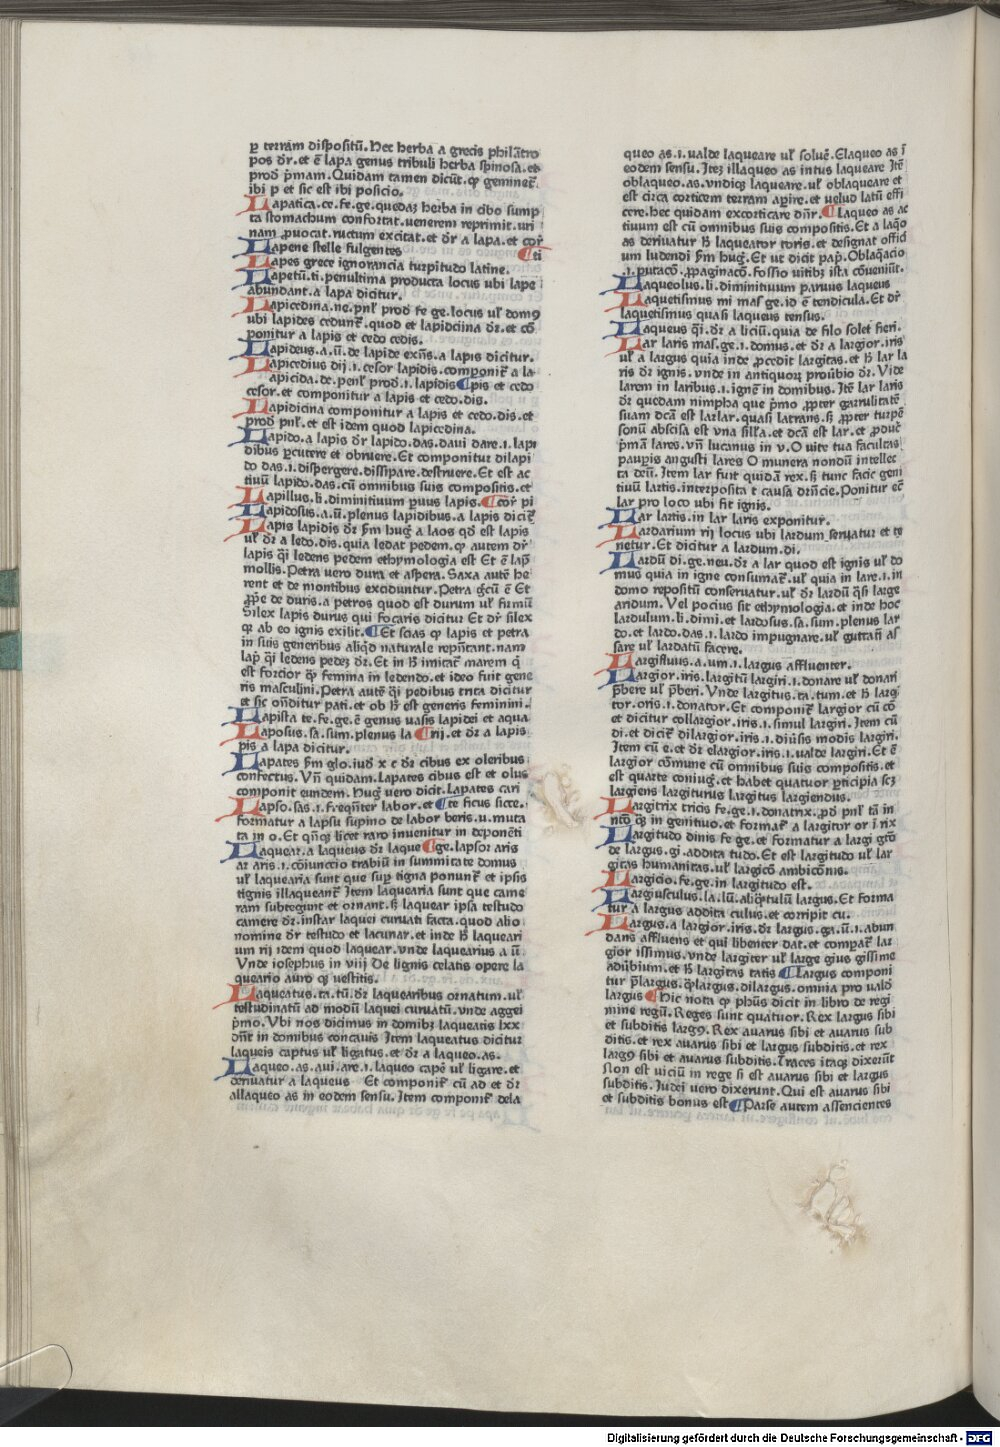 ꝑ terrām dispositū. Hec herba a grecis philātro
pos dr̄. et ē lapa genus tribuli herba spinosa. et
prod̄ pͥmam. Quidam tamen dicūt. ꝙ gemineť.
ibi p et sic est ibi posicio.
Lapatica. ce. fe. ge. quedaȝ herba in cibo sump
ta stomachum confortat. venerem reprimit. uri
nam ꝓuocat. ructum excitat. et dr̄ a lapa. et cor̄
Lapene stelle fulgentes ¶ti
Lapes grece ignorancia turpitudo latine.
Lapetū. ti. penultima producta locus ubi lape
abundant. a lapa dicitur.
Lapicedina. ne. pnl̄t prod̄ fe ge. locus ul̄ domꝰ
ubi lapides cedunť. quod et lapidciina dr̄. et cō
ponitur a lapis et cedo cedis.
Lapideus. a. ū. de lapide exn̄s. a lapis dicitur.
Lapicedius dij. i. cesor lapidis. componiť a la-
apicida. de. penl̄t prod̄. i. lapidis ¶pis et cedo
cesor. et componitur a lapis et cedo. dis.
Lapidicina componitur a lapis et cedo. dis. et
prod̄ pnl̄t. et est idem quod lapicedina.
Lapido. a lapis dr̄ lapido. das. daui dare. i. lapi
dibus ꝑcutere et obruere. Et componitur dilapi
do das. i. dispergere. dissipare. destruere. Et est ac
tiuū lapido. das. cū omnibus suis compositis. et
Lapillus. li. diminitiuum ꝑuus lapis. ¶cor̄ pi
Lapidosus. a. ū. plenus lapidibus. a lapis diciť
Lapis lapidis dr̄ sm̄ huḡ a laos qd̄ est lapis
ul̄ dr̄ a ledo. dis. quia ledat pedem. ꝙ autem dr̄
lapis q̄i ledens pedem ethymologia est Et ē lap̄
mollis. Petra uero dura et aspera. Saxa autē he
rent et de montibus exciduntur. Petra gͨcū ē Et
ꝓͥpe de duris. a petros quod est durum ul̄ firmū
Silex lapis durus qui focaris dicitur Et dr̄ silex
ꝙ ab eo ignis exilit. ¶Et scias ꝙ lapis et petra
in suis generibus aliqͦd naturale rep̄ntant. nam
lap̄ q̄i ledens pedeȝ dr̄. Et in h̄ imitať marem q̄
est forcior ꝙ femina in ledendo. et ideo fuit gene
ris masculini. Petra autē q̄i pedibus trita dicitur
et sic on̄ditur pati. et ob h̄ est generis feminini.
Lapista te. fe. ge. ē genus uasis lapidei et aqua
Laposus. sa. sum. plenus la ¶rij. et dr̄ a lapis
pis a lapa dicitur.
Lapates sm̄ glo. iud̄ x c dr̄ cibus ex oleribus
confectus. Vn̄ quidam. Lapates cibus est et olus
componit eundem. Huḡ vero dicit. Lapates cari
Lapso. sas. i. freqn̄ter labor. et ¶te ficus sicce.
formatur a lapsu supino de labor beris. u. muta
ta in o. Et qn̄qꝫ licet raro inuenitur in deponēti
Laquear. a laqueus dr̄ laque ¶ge. lapsor aris
ar aris. i. cōiunccio trabiū in summitate domus
ul̄ laquearia sunt que suꝑ tigna ponunť et ipsis
tignis illaqueanť Item laquearia sunt que came
ram subtegunt et ornant. s̄ laquear ipsa testudo
camere dr̄. instar laquei curuati facta. quod alio
nomine dr̄ testudo et lacunar. et inde h̄ laqueari
um rij idem quod laquear. vnde laquearius a ū.
Vnde iosephus in viij De lignis celatis opere la
queario auro qꝫ uestitis.
Laqueatus. ta. tū. dr̄ laquearibus ornatum. ul̄
testudinatū ad modū laquei curuatū. vnde aggei
pͥmo. Vbi nos dicimus in domibꝫ laqueatis lxx
dn̄t in domibus concauis Item laqueatus dicitur
laqueis captus ul̄ ligatus. et dr̄ a laqueo. as.
Laqueo. as. aui. are. i. laqueo capē ul̄ ligare. et
deriuatur a laqueus Et componiť cū ad et dr̄
allaqueo as in eodem sensu. Item componiť dela
queo as. i. ualde laqueare ul̄ soluē. Elaqueo as ī
eodem sensu. Iteȝ illaqueo as intus laqueare Itē
oblaqueo. as. vndiqꝫ laqueare. ul̄ oblaqueare et
est circa corticem terram aꝑire. et uelud latū effi
cere. hec quidam excorticare dn̄r. ¶Laqueo as ac
tiuum est cū omnibus suis compositis. Et a laqͦo
as deriuatur h̄ laqueator toris. et designat offici
um ludendi sm̄ huḡ. Et ut dicit pap̄. Oblaqͣacio
.i. putacō. ꝓpaginacō. Fossio uitibꝫ ista cōueniūt.
Laqueolus. li. diminituum paruus laqueus
Laquetismus mi mas̄ ge. id ē tendicula. Et dr̄
laquetismus quasi laqueus tensus.
Laqueus q̄i. dr̄ a liciū. quia de filo solet fieri.
Lar laris mas̄. ge. i. domus. et dr̄ a largior. iris
ul̄ a largus quia inde ꝓcedit largitas. et h̄ lar la
ris dr̄ ignis. vnde in antiquorꝫ prouͥbio dr̄. Vide
larem in laribus. i. ignē in domibus. Itē lar laris
dr̄ quedam nimpha que pͥmo ꝓpter garrulitatē
suam dc̄a est larlar. quasi latrans. s̄ ꝓpter turpē
sonū abscisa est vna sill̄a. et dc̄a est lar. et ꝓduc̄
pͥmā lares. vn̄ lucanus in v. O uite tua facultas
pauꝑis angusti lares O munera nondū intellec
ta deū. Item lar fuit quidā rex. s̄ tunc facic geni
tiuū lartis. interposita t causa drn̄cie. Ponitur ec̄
lar pro loco ubi fit ignis.
Lar lartis. in lar laris exponitur.
Lardarium rij locus ubi lardum seruatur et te
netur. Et dicitur a lardum. di.
Lardū di. ge. neu. dr̄ a lar quod est ignis ul̄ do
mus quia in igne consumať. ul̄ quia in lare. i. in
domo repositū conseruatur. ul̄ dr̄ lardū q̄si large
aridum. Vel pocius sit ethymologia. et inde hoc
lardulum. li. dimi. et lardosus. sa. sum. plenus lar
do. et lardo. das. i. lardo impugnare. ul̄ guttati as̄
sare ul̄ lardatū facere.
Largifluus. a. um. i. largus affluenter.
Largior. iris. largitū largiri. i. donare ul̄ donari
pͥbere ul̄ pͥberi. Vnde largitus. ta. tum. et h̄ largi
tor. oris. i. donator. Et componiť largior cū cō
et dicitur collargior. iris. i. simul largiri. Item cū
di. et diciť dilargior. iris. i. diuͥsis modis largiri.
Item cū e. et dr̄ elargior. iris. i. ualde largiri. Et ē
largior cōmune cū omnibus suis compositis. et
est quarte coniuḡ. et habet quatuor ꝑticipia scȝ
largiens largiturus largitus largiendus.
Largitrix tricis fe. ge. i. donatrix. ꝓd̄ pnl̄ tā in
ntō qͥ̄ꝫ in genituo. et formať a largitor or i rix
Largitudo dinis fe ge. et formatur a largi gtō
de largus. gi. addita tudo. Et est largitudo ul̄ lar
gitas humanitas. ul̄ largicō ambicōnis.
Largicio. fe. ge. in largitudo est.
Largiusculus. la. lū. aliqͣ̄tulū largus. Et forma
tur a largus addita culus. et corripit cu.
Largus. a largior. iris. dr̄ largus. ga. ū. i. abun
dans affluens et qui libenter dat. et compať lar
gior issimus. vnde largiter ul̄ large gius gissime
aduͥbium. et h̄ largitas tatis ¶Largus componi
tur pͥlargus. qͣlargus. dilargus. omnia pro uald̄
largus ¶Hic nota ꝙ ph̄us dicit in libro de regi
mine regū. Reges sunt quatuor. Rex largus sibi
et subditis largꝰ. Rex auarus sibi et auarus sub
ditis. et rex auarus sibi et largus subditis. et rex
largꝰ sibi et auarus subditis. Traces itaqꝫ dixerūt
Non est uiciū in rege si est auarus sibi et largus
subditis. Iudei uero dixerunt. Qui est auarus sibi
et subditis bonus est ¶Parse autem assencientes
Digitalisierung gefördert durch die Deutsche Forschungsgemeinschaft - DFG